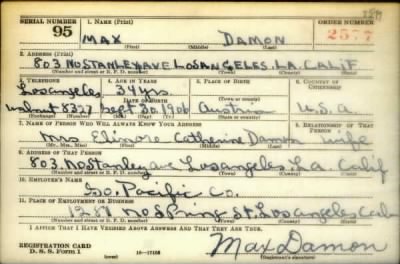 SERIAL NUMBER 1. NAME (Print) ORDER NUMBER
95 MAX DAMON 2577
(First) (Middle) (Last)
2. ADDRESS (Print)
803 NO STANLEY AVE LOS ANGELES. L.A. CALIF
(Number and street or R. F. D. number) (Town) (County) (State)
3. TELEPHONE 4. AGE IN YEARS 5. PLACE OF BIRTH 6. COUNTRY OF CITIZENSHIP
Los angeles 34 yrs.
DATE OF BIRTH
Walnut 8327 Sept 30 1906 Austria U.S.A
(Exchange) (Number) (Mo.) (Day) (Yr.) (State or country)
7. NAME OF PERSON WHO WILL ALWAYS KNOW YOUR ADDRESS 8. RELATIONSHIP OF THAT PERSON
Mrs Elinore Catherine Damon wife
(Mr., Mrs., Miss) (First) (Middle) (Last)
9. ADDRESS OF THAT PERSON
803. No Stanley ave Los angeles L.a. Calif
(Number and street or R. F. D. number) (Town) (County) (State)
10. EMPLOYER'S NAME
So. Pacific Co.
11. PLACE OF EMPLOYMENT OR BUSINESS
no Spring St. Los angeles
(Number and street or R. F. D. number) (Town) (County) (State)
I AFFIRM THAT I HAVE VERIFIED ABOVE ANSWERS AND THAT THEY ARE TRUE.
REGISTRATION CARD
D. S. S. Form 1 (over) Max Damon
(Registrant's signature)